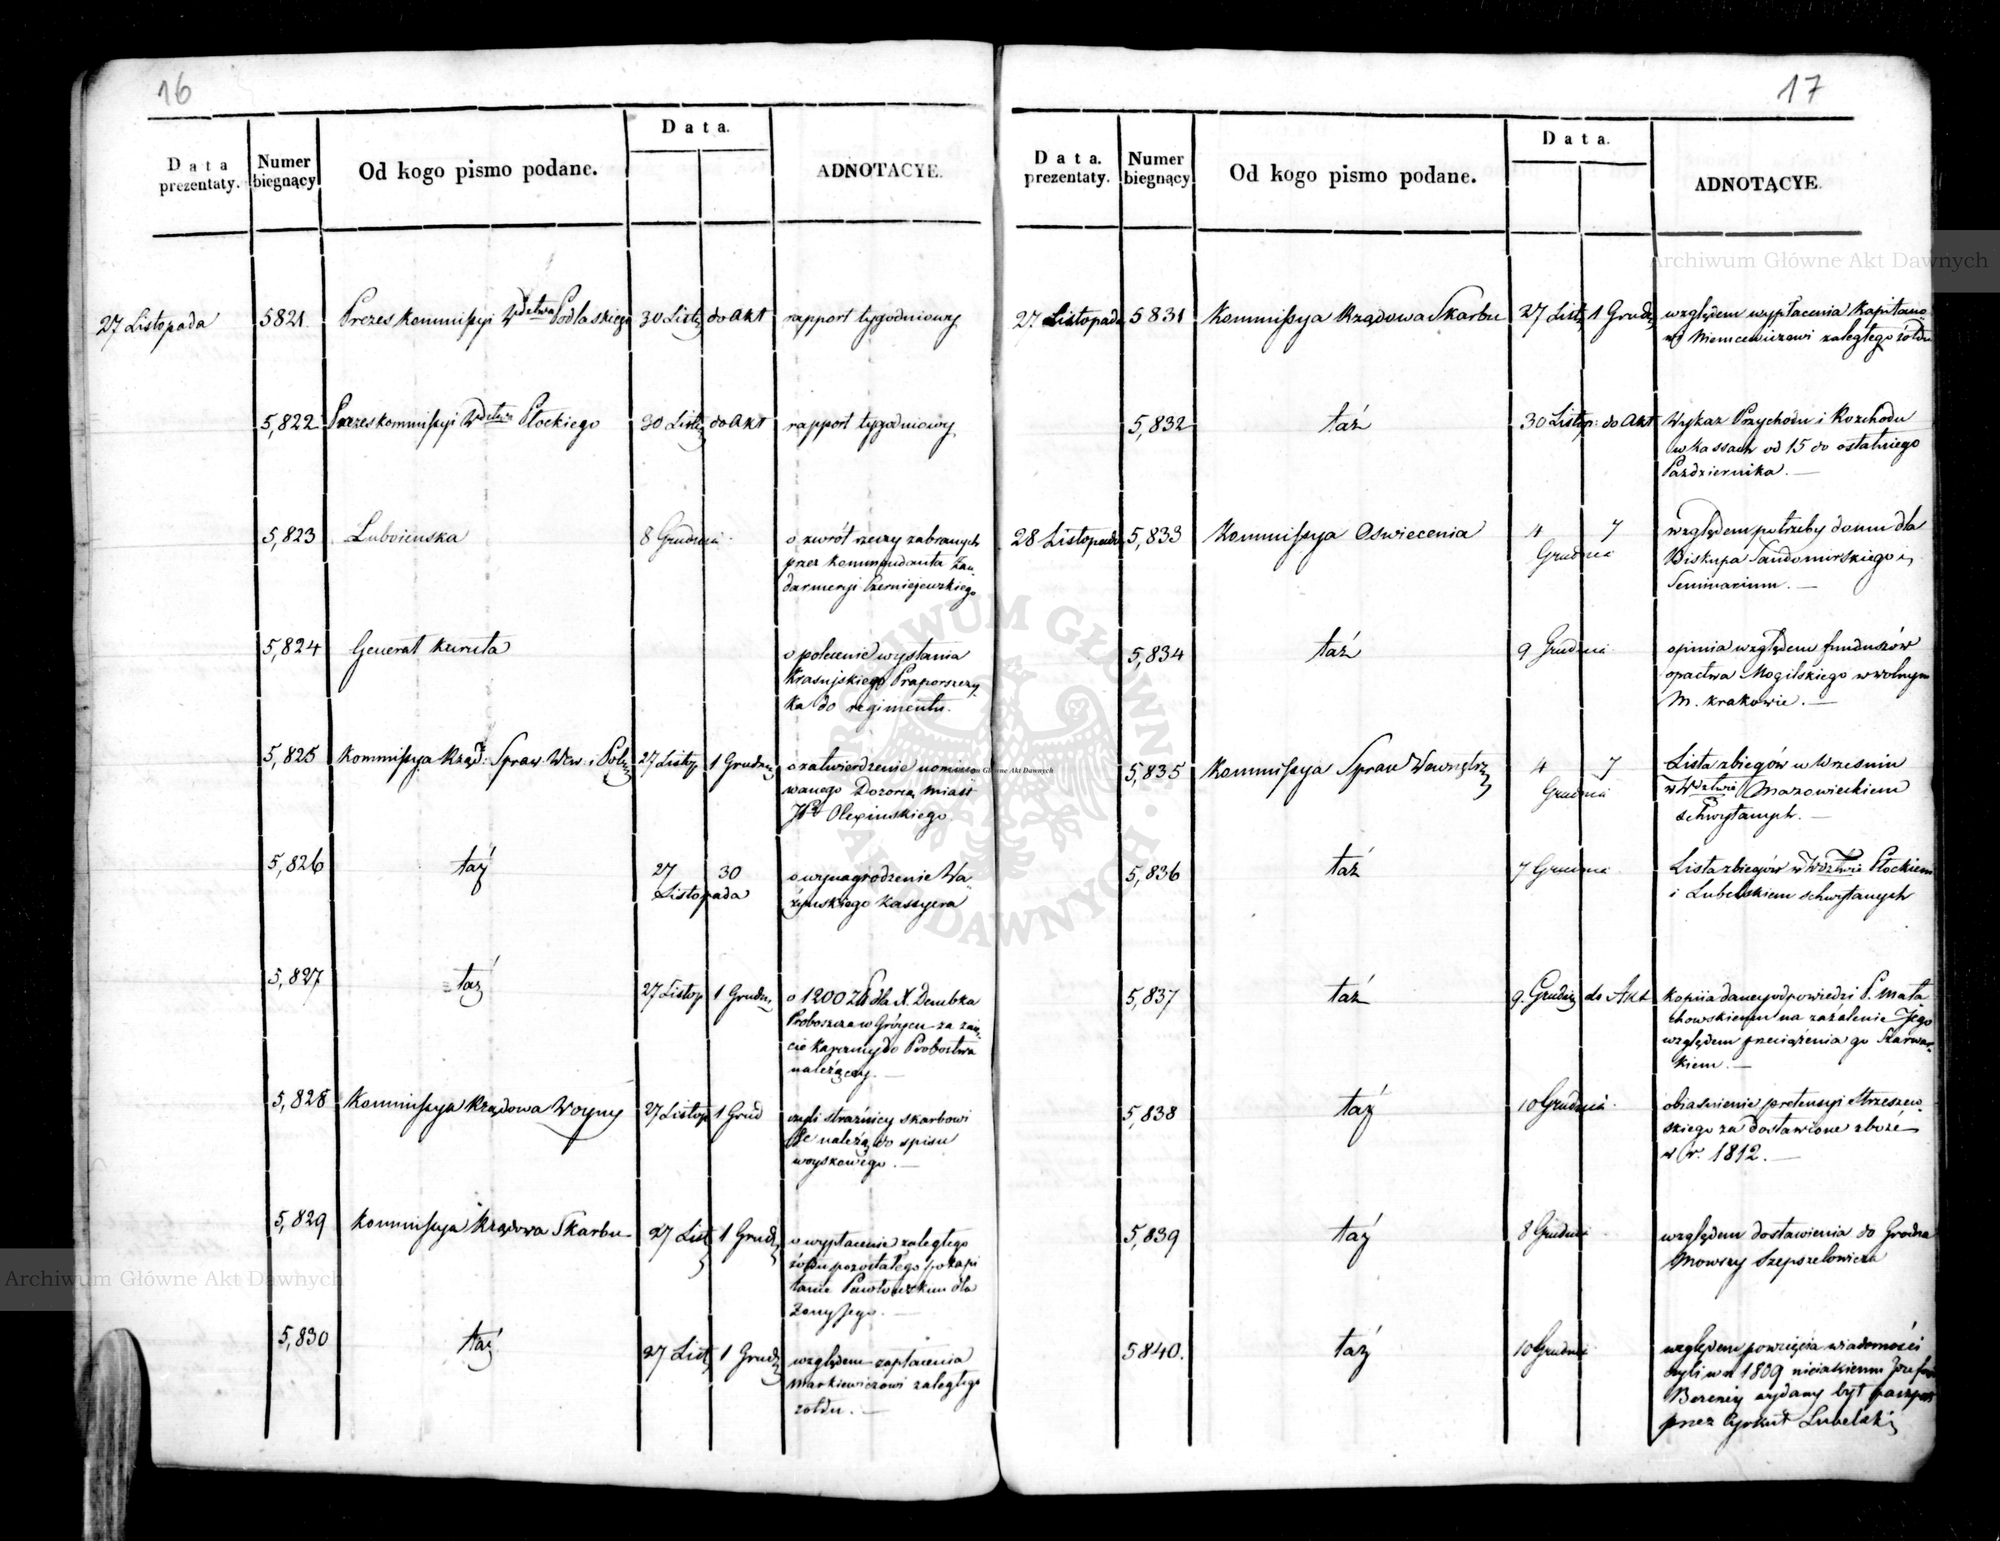 16
Data prezentaty. Numer biegnący Od kogo pismo podane. Data. ADNOTACYE.
27 Listopada 5821. Prezes Kommissyi Wdztwa Podlaskiego 30 List: do Akt rapport tygodniowy
5,822 Prezes Kommissyi Wdztwa Płockiego 30 List: do Akt rapport tygodniowy
5,823 8 Grudnia o zwrót rzeczy zabranych
przez Kommendanta Żan-
darmeryi
5,824 Generał Kuruta o polecenie wysłania
Praporszczy
ka do regimentu.
5,825 Kommissya Rząd: Spraw Wew: i Pol: 27 Listop 1 Grudnia o zatwierdzenie nomino
wanego Dozorcą miast
5,826 taż 27 30 o wynagrodzenie Wa
Listopada żyńskiego Kassyera
5,827 taż 27 Listop 1 Grudn: o 1200 Zł dla X. Dembka
Proboszcza w Grójcu za zaię-
cie Karczmy do Probostwa
należącey. —
5,828 Kommissya Rządowa Woyny 27 Listop 1 Grud czyli strażnicy skarbowi
należą do spisu
woyskowego. —
5,829 Kommissya Rządowa Skarbu 27 List 1 Grudz o wypłacenie zaległego
żołdu pozostałego po Kapi
tanie dla
Żony Jego. —
5,830 taż 27 List 1 Grudz względem zapłacenia
Markiewiczowi zaległego
żołdu. —
17
Data. prezentaty. Numer biegnący Od kogo pismo podane. Data. ADNOTACYE.
27 Listopada 5831 Kommissya Rządowa Skarbu 27 List 1 Grudz względem wypłacenia Kapitano
wi Niemcewiczowi zaległego żołdu
5,832 taż 30 Listop: do Akt Wykaz Przychodu i Rozchodu
w Kassach od 15 do ostatniego
Października. —
28 Listopada 5,833 Kommissya Oswiecenia 4 7 względem potrzeby domu dla
Grudnia Biskupa Sandomirskiego i
Seminarium. —
5,834 taż 9 Grudnia opinia względem funduszów
opactwa Mogilskiego w wolnym
M. Krakowie. —
5,835 Kommissya Spraw Wewnętrz 4 7 Lista zbiegów w Wrzesniu
Grudnia w Wdztwie Mazowieckiem
schwytanych. —
5,836 taż 7 Grudnia Lista zbiegów w Wdztwie Płockiem
i Lubelskiem schwytanych
5,837 taż 9. Grudnia do Akt Kopiia daney odpowiedzi P. Mała
chowskiemu na zażalenie Jego
względem przeciążenia go Szarwar-
kiem. —
5,838 taż 10 Grudnia obiasnienie pretensyi Strzeszew-
skiego za dostawione zboże
w r. 1812. —
5,839 taż 8 Grudnia względem dostawienia do Grodna
Mowszy Szepszelowicza
5840. taż 10 Grudnia względem powzięcia wiadomości
czyli w r 1809 nieiakiemu
wydany był paszport
przez Cyrkuł Lubelski
Archiwum Główne Akt Dawnych
Archiwum Główne Akt Dawnych
Główne Akt Dawnych
ARCHIWUM GŁÓWNE AKT DAWNYCH